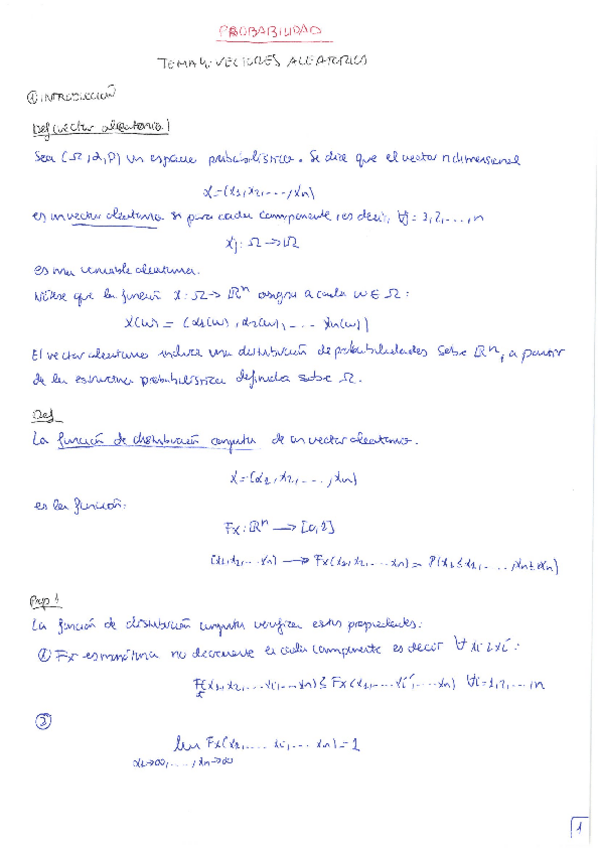 PROBABILIDAD
TEMA 4: VECTORES ALEATORIOS
① INTRODUCCIÓN
Def (vector aleatorio)
Sea (Ω, A, P) un espacio probabilístico. Se dice que el vector n dimensional
X = (X1, X2, ..., Xn)
es un vector aleatorio si para cada componente, es decir, ∀j = 1, 2, ..., n
Xj: Ω → Ω
es una variable aleatoria.
Nótese que la función X: Ω → ℝⁿ asigna a cada w ∈ Ω:
X(w) = (X1(w), X2(w), ... Xn(w))
El vector aleatorio induce una distribución de probabilidades sobre ℝⁿ, a partir
de la estructura probabilística definida sobre Ω.
Def
La función de distribución conjunta de un vector aleatorio.
X = (X1, X2, ..., Xn)
es la función:
Fx: ℝⁿ → [0,1]
(x1, x2, ... xn) → Fx(x1, x2, ... xn) = P(X1 ≤ x1, ..., Xn ≤ xn)
Prop
La función de distribución conjunta verifica estas propiedades:
① Fx es monótona no decreciente en cada componente es decir ∀ xi ≤ xi':
Fx(x1, x2, ... xi, ... xn) ≤ Fx(x1, ... xi', ... xn) ∀i = 1, 2, ..., n
②
lim Fx(x1, ... xi, ... xn) = 1
x1→∞, ..., xn→∞
1